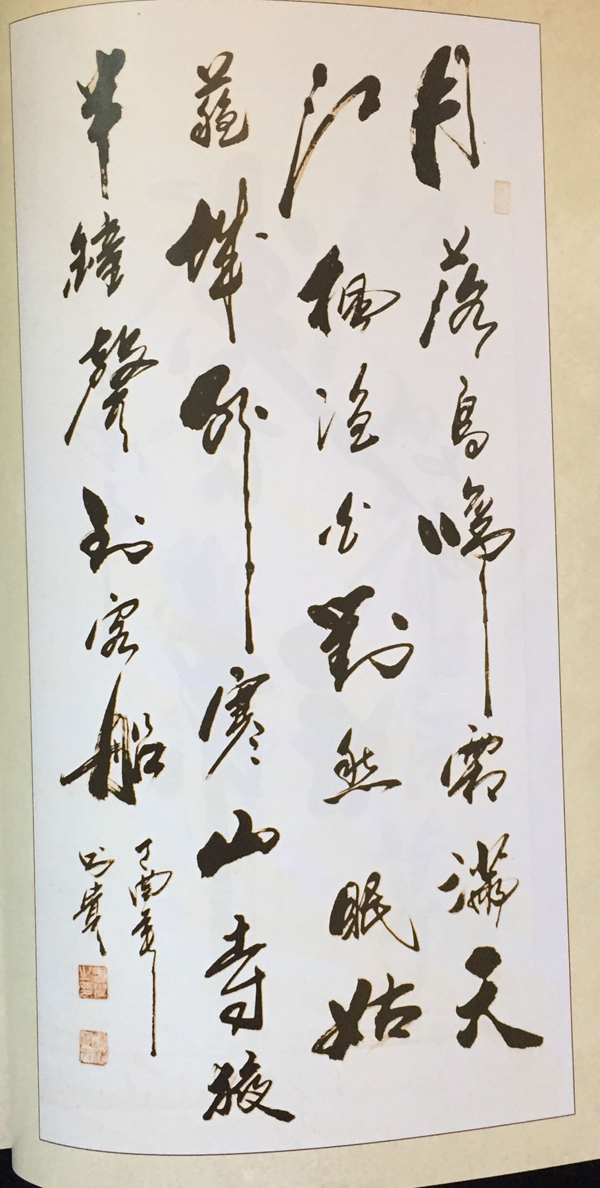 月落烏啼霜滿天
江楓漁火對愁眠姑
蘇城外寒山寺夜
半鐘聲到客船
丁酉夏